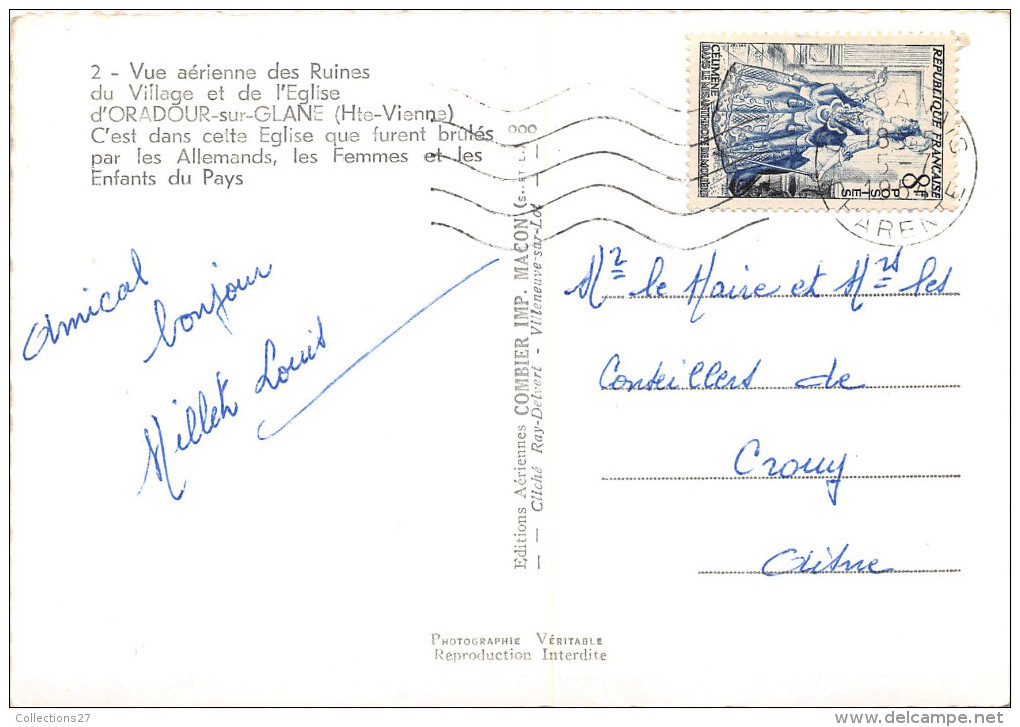 2 - Vue aérienne des Ruines
du Village et de l'Eglise
d'ORADOUR-sur-GLANE (Hte-Vienne)
C'est dans cette Eglise que furent brûlés
par les Allemands, les Femmes et les
Enfants du Pays
Amical
bonjour
Millet Louis
Editions Aériennes COMBIER IMP. MACON (S.-ET-L.)
Cliché Ray-Delvert - Villeneuve-sur-Lot
REPUBLIQUE FRANÇAISE
8F
POSTES
CÉLIMÈNE
DANS LE MISANTHROPE DE MOLIÈRE
18
5
Mr le Maire et Mrs les
Conseillers de
Crouy
Aisne
PHOTOGRAPHIE VÉRITABLE
Reproduction Interdite
Collections27
http://www.delcampe.net